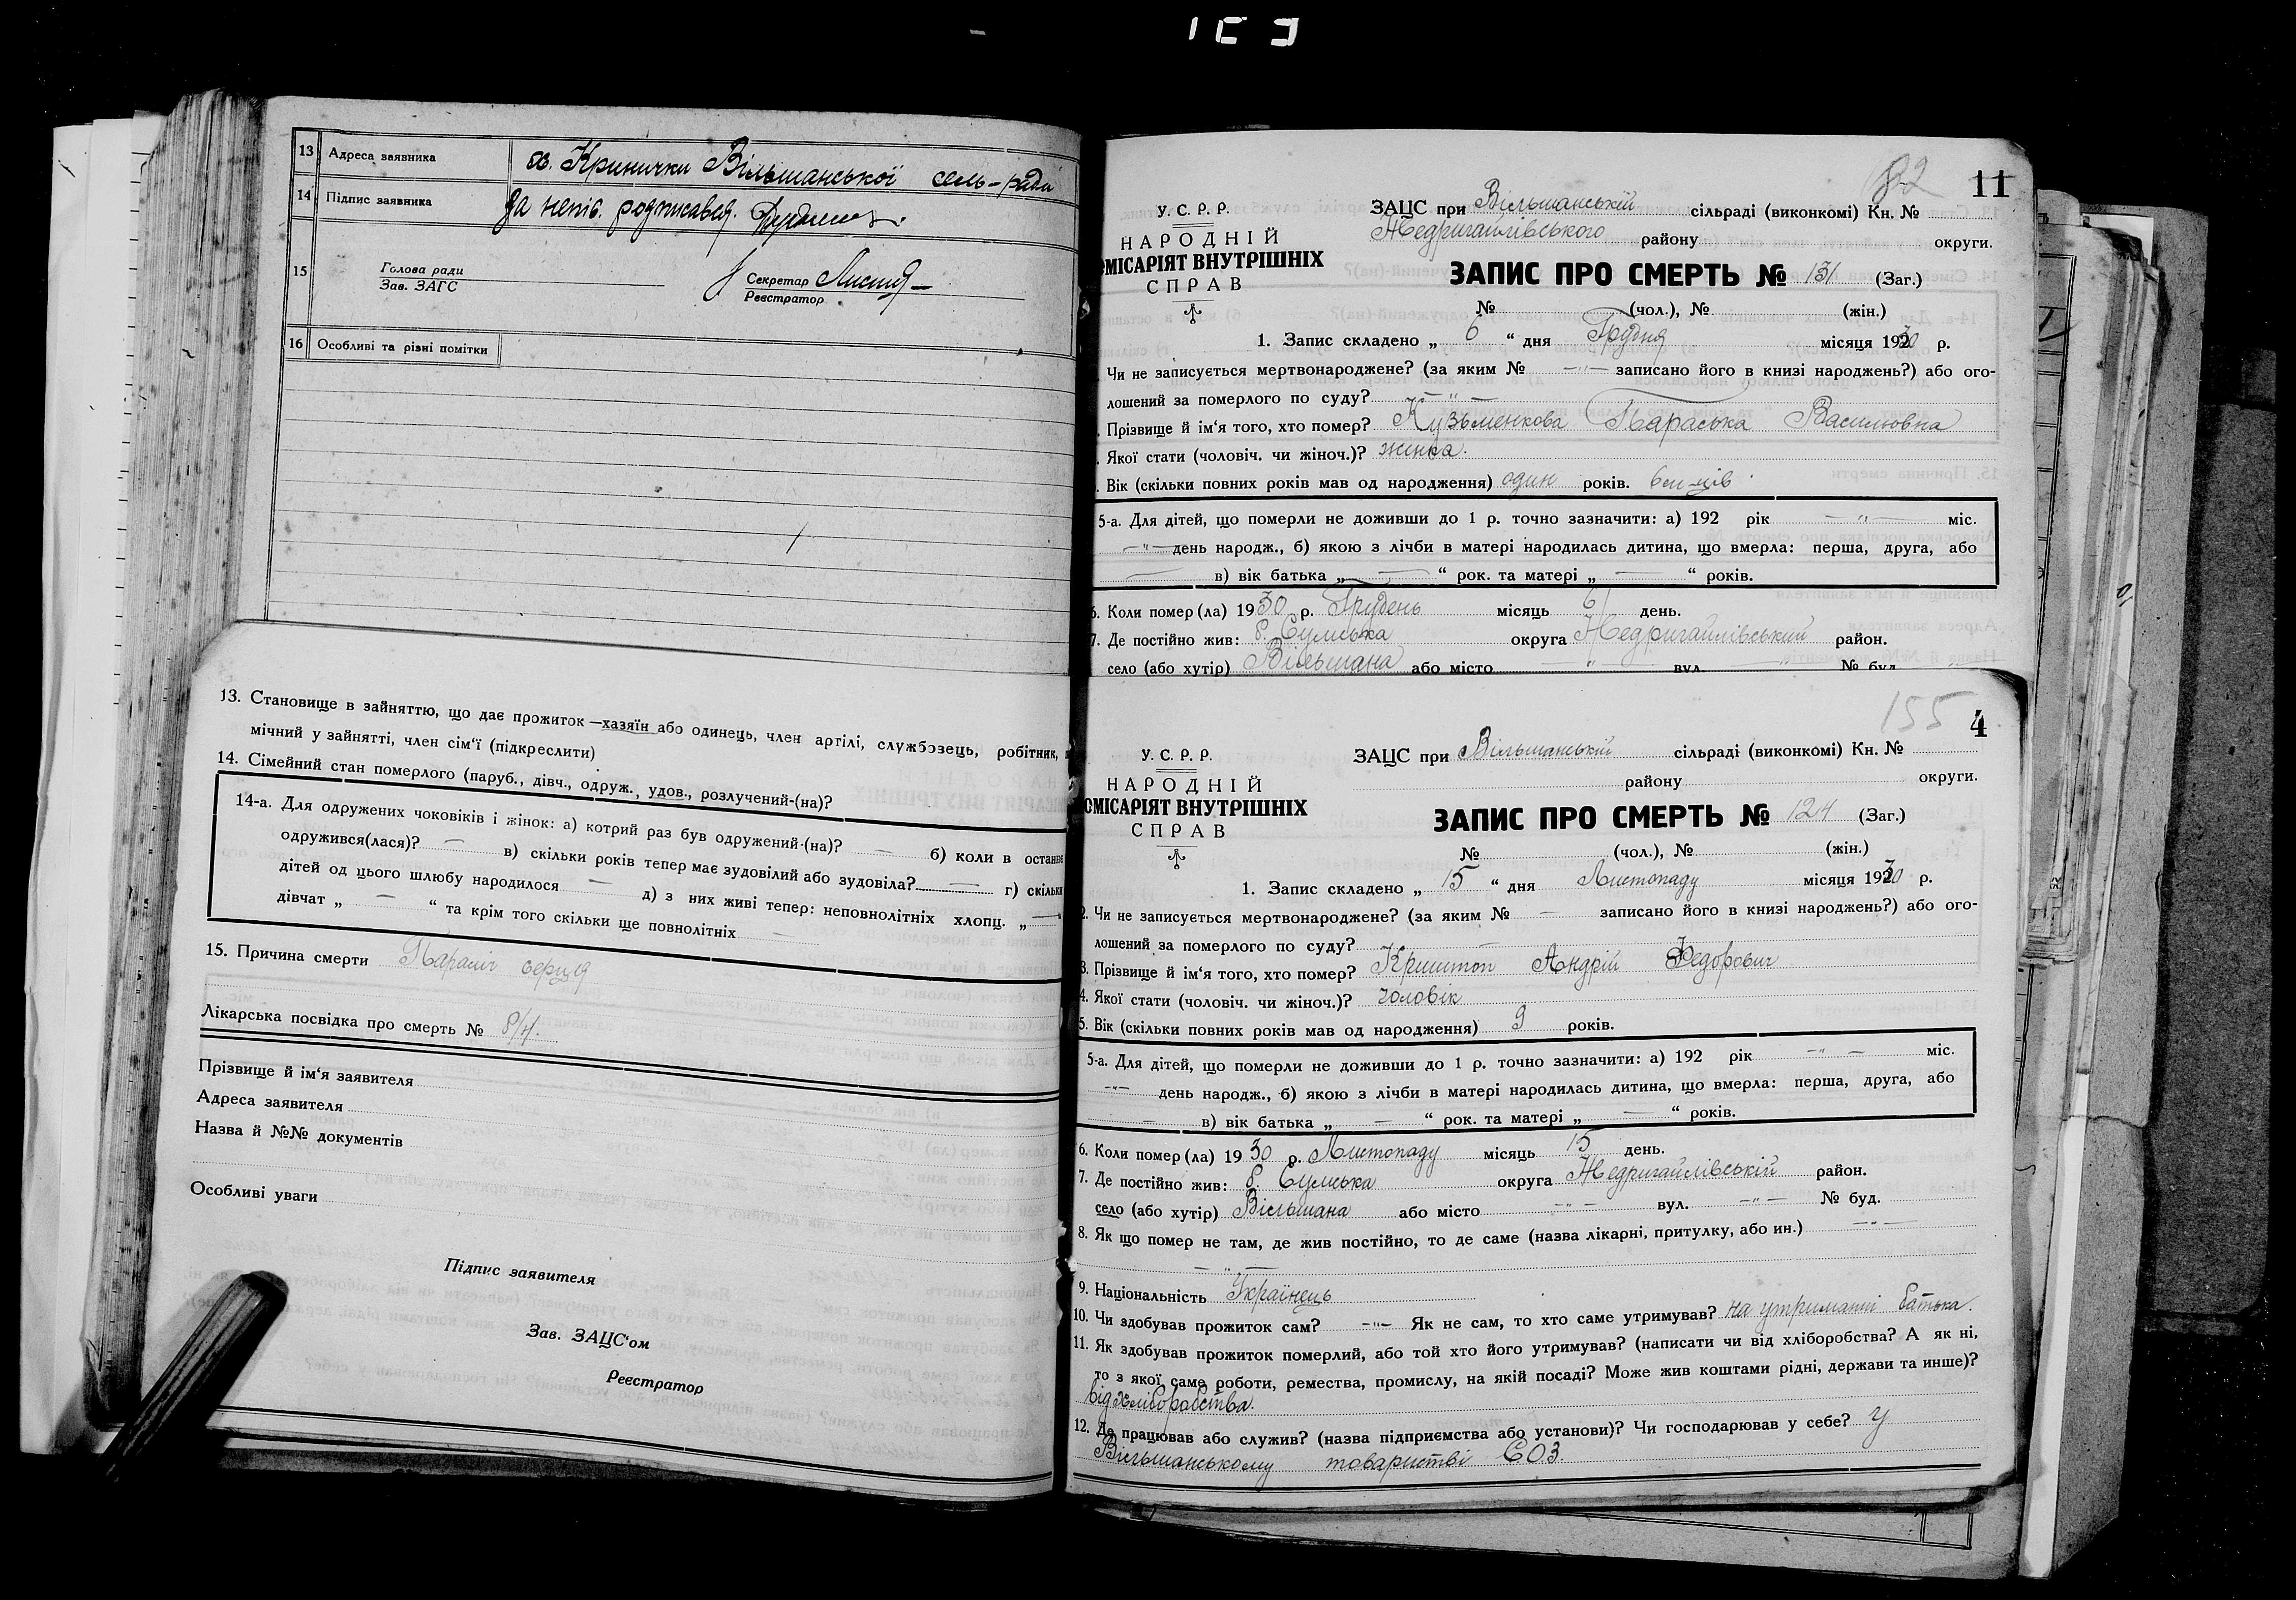 13 Адреса заявника х. Кринички Вільшанської сель-ради
14 Підпис заявника За непис. розписався.
15 Голова ради
Зав. ЗАГС
Секретар
Реєстратор
16 Особливі та різні помітки
13. Становище в зайняттю, що дає прожиток—хазяїн або одинець, член артілі, службовець, робітник,
мічний у зайнятті, член сім'ї (підкреслити)
14. Сімейний стан померлого (паруб., дівч., одруж., удов., розлучений-(на)?
14-а. Для одружених чоковіків і жінок: а) котрий раз був одружений-(на)? — б) коли в останнє
одружився(лася)? — в) скільки років тепер має зудовілий або зудовіла? — г) скільки
дітей од цього шлюбу народилося — д) з них живі тепер: неповнолітніх хлопц. „ —
дівчат „ — “ та крім того скільки ще повнолітніх —
15. Причина смерти Параліч серця
Лікарська посвідка про смерть № б/н.
Прізвище й ім'я заявителя
Адреса заявителя
Назва й №№ документів
Особливі уваги
Підпис заявителя
Зав. ЗАЦС'ом
Реєстратор
11
У. С. Р. Р.
НАРОДНІЙ
ОМІСАРІЯТ ВНУТРІШНІХ
СПРАВ
ЗАЦС при Вільшанській сільраді (виконкомі) Кн. №
Недригайлівського району округи.
ЗАПИС ПРО СМЕРТЬ № 131 (Заг.)
№ (чол.), № (жін.)
1. Запис складено „ 6 “ дня Грудня місяця 1930 р.
Чи не записується мертвонароджене? (за яким № —"— записано його в книзі народжень?) або ого-
лошений за померлого по суду? —"—
Прізвище й ім'я того, хто помер? Кузьменкова Параська Васильовна
Якої стати (чоловіч. чи жіноч.)? жінка.
Вік (скільки повних років мав од народження) один років. 6 м-ців.
5-а. Для дітей, що померли не доживши до 1 р. точно зазначити: а) 192 рік —"— міс.
—"— день народж., б) якою з лічби в матері народилась дитина, що вмерла: перша, друга, або
— в) вік батька „ — “ рок. та матері „ — “ років.
6. Коли помер (ла) 1930 р. Грудень місяць 6 день.
7. Де постійно жив: б. Сумська округа Недригайлівський район.
село (або хутір) Вільшана або місто —"— вул. " № буд. "
155 4
У. С. Р. Р.
НАРОДНІЙ
ОМІСАРІЯТ ВНУТРІШНІХ
СПРАВ
ЗАЦС при Вільшанській сільраді (виконкомі) Кн. №
району округи.
ЗАПИС ПРО СМЕРТЬ № 124 (Заг.)
№ (чол.), № (жін.)
1. Запис складено „ 15 “ дня Листопаду місяця 1930 р.
2. Чи не записується мертвонароджене? (за яким № — записано його в книзі народжень?) або ого-
лошений за померлого по суду? —
3. Прізвище й ім'я того, хто помер? Криштоп Андрій Федорович
4. Якої стати (чоловіч. чи жіноч.)? чоловік
5. Вік (скільки повних років мав од народження) 9 років.
5-а. Для дітей, що померли не доживши до 1 р. точно зазначити: а) 192 рік —"— міс.
—"— день народж., б) якою з лічби в матері народилась дитина, що вмерла: перша, друга, або
— в) вік батька „ — “ рок. та матері „ — “ років.
6. Коли помер (ла) 1930 р. Листопаду місяць 15 день.
7. Де постійно жив: б. Сумська округа Недригайлівській район.
село (або хутір) Вільшана або місто —"— вул. —"— № буд.
8. Як що помер не там, де жив постійно, то де саме (назва лікарні, притулку, або ин.) —"—
—"—
9. Національність Українець
10. Чи здобував прожиток сам? —"— Як не сам, то хто саме утримував? на утриманні батька.
11. Як здобував прожиток померлий, або той хто його утримував? (написати чи від хліборобства? А як ні,
то з якої саме роботи, ремества, промислу, на якій посаді? Може жив коштами рідні, держави та инше)?
від хліборобства.
12. Де працював або служив? (назва підприємства або установи)? Чи господарював у себе? у
Вільшанському товаристві СОЗ.